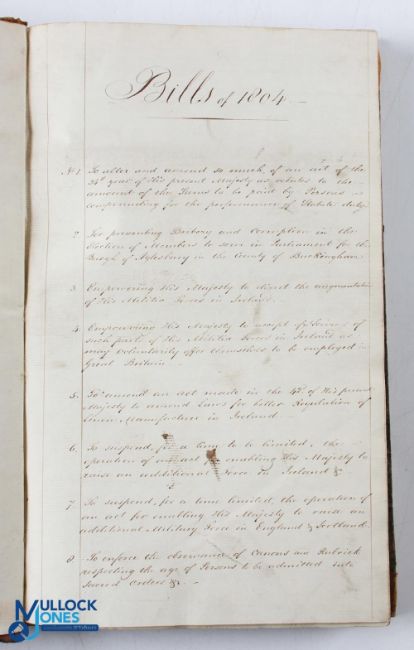 Bills of 1804
No 1. To alter and amend so much of an act of the
34th year of His present Majesty as relates to the
amount of the Sums to be paid by Persons
compounding for the performance of Statute duty
2. For preventing Bribery and Corruption in the
Election of Members to serve in Parliament for the
Borough of Aylesbury in the County of Buckingham
3. Empowering His Majesty to direct the augmentation
of His Militia Forces in Ireland.
4. Empowering His Majesty to accept of Services of
such parts of His Militia Forces in Ireland as
may voluntarily offer themselves to be employed in
Great Britain
5. To amend an act made in the of His present
Majesty to amend Laws for better Regulation of
Linen Manufacture in Ireland
6. To suspend, for a time to be limited, the
operation of an act for enabling His Majesty to
raise an additional Force in Ireland &c
7. To suspend, for a time limited, the operation of
an act for enabling His Majesty to raise an
additional Military Force in England & Scotland
8. To enforce the observance of Canons and Rubrick
respecting the age of Persons to be admitted into
Sacred Orders &c
MULLOCK
JONES